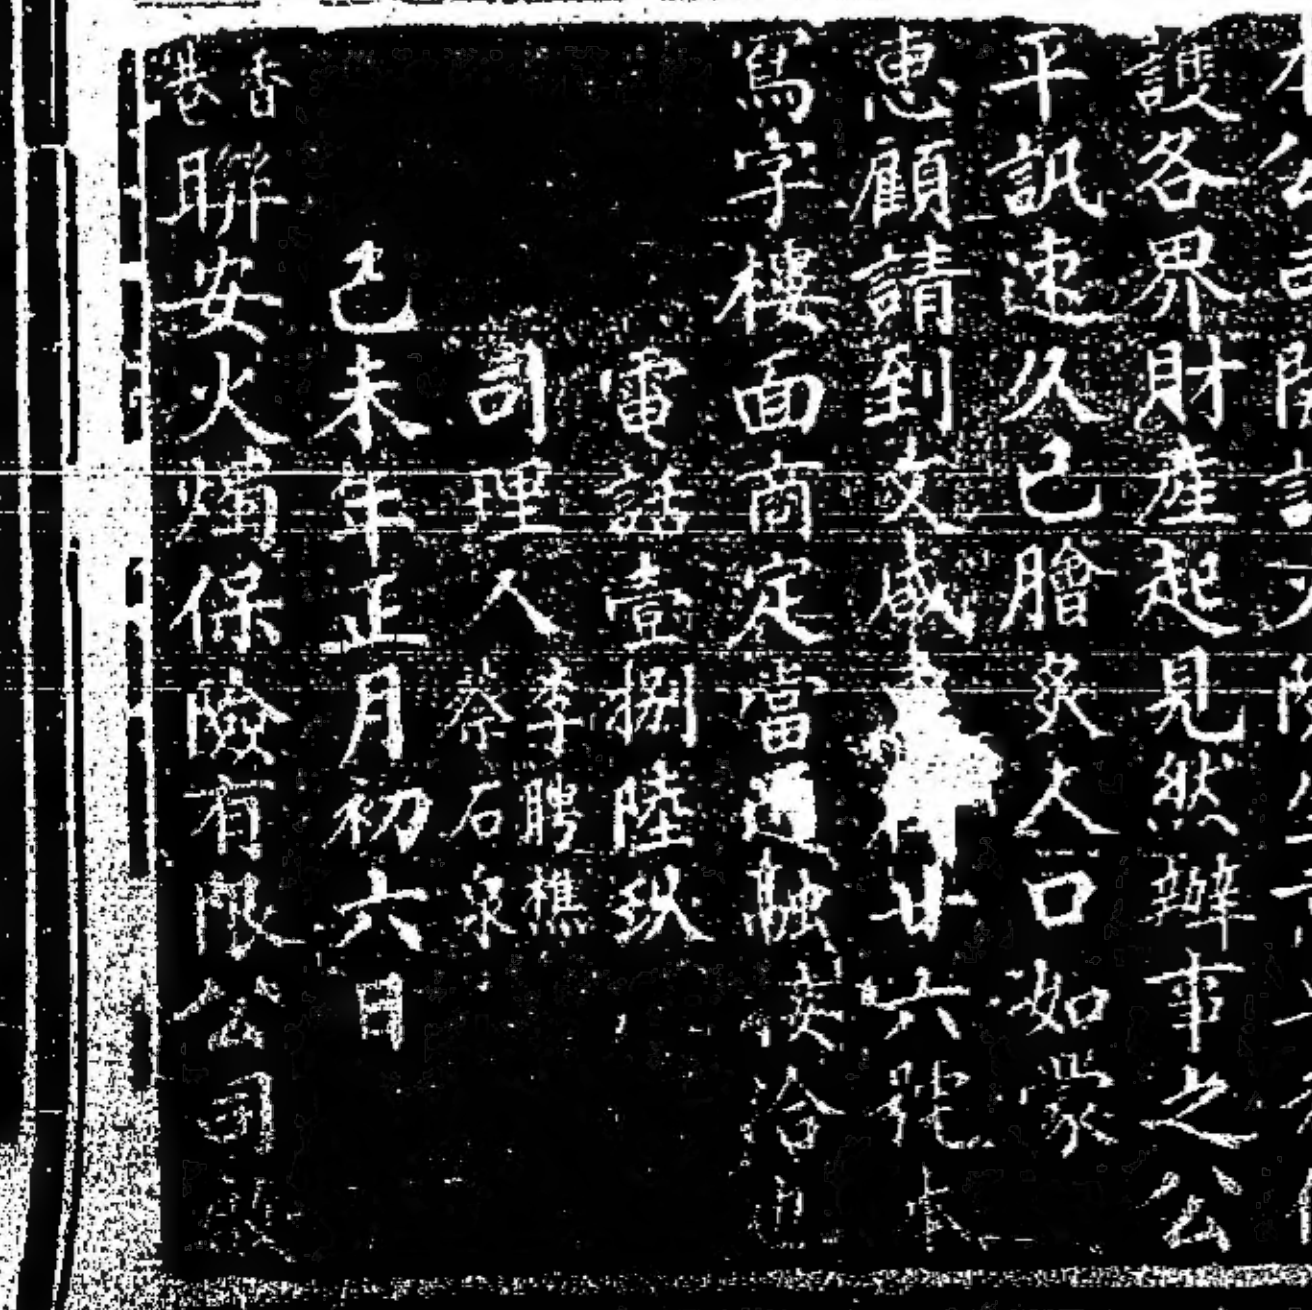 護各界財產起見然辦事之公
平訊速久已膾炙人口如蒙
惠顧請到文咸廿六號本
寫字樓面商定當通融妥洽
電話壹捌陸玖
司理人李聘樵蔡石泉
己未年正月初六日
香港聯安火燭保險有限公司啟